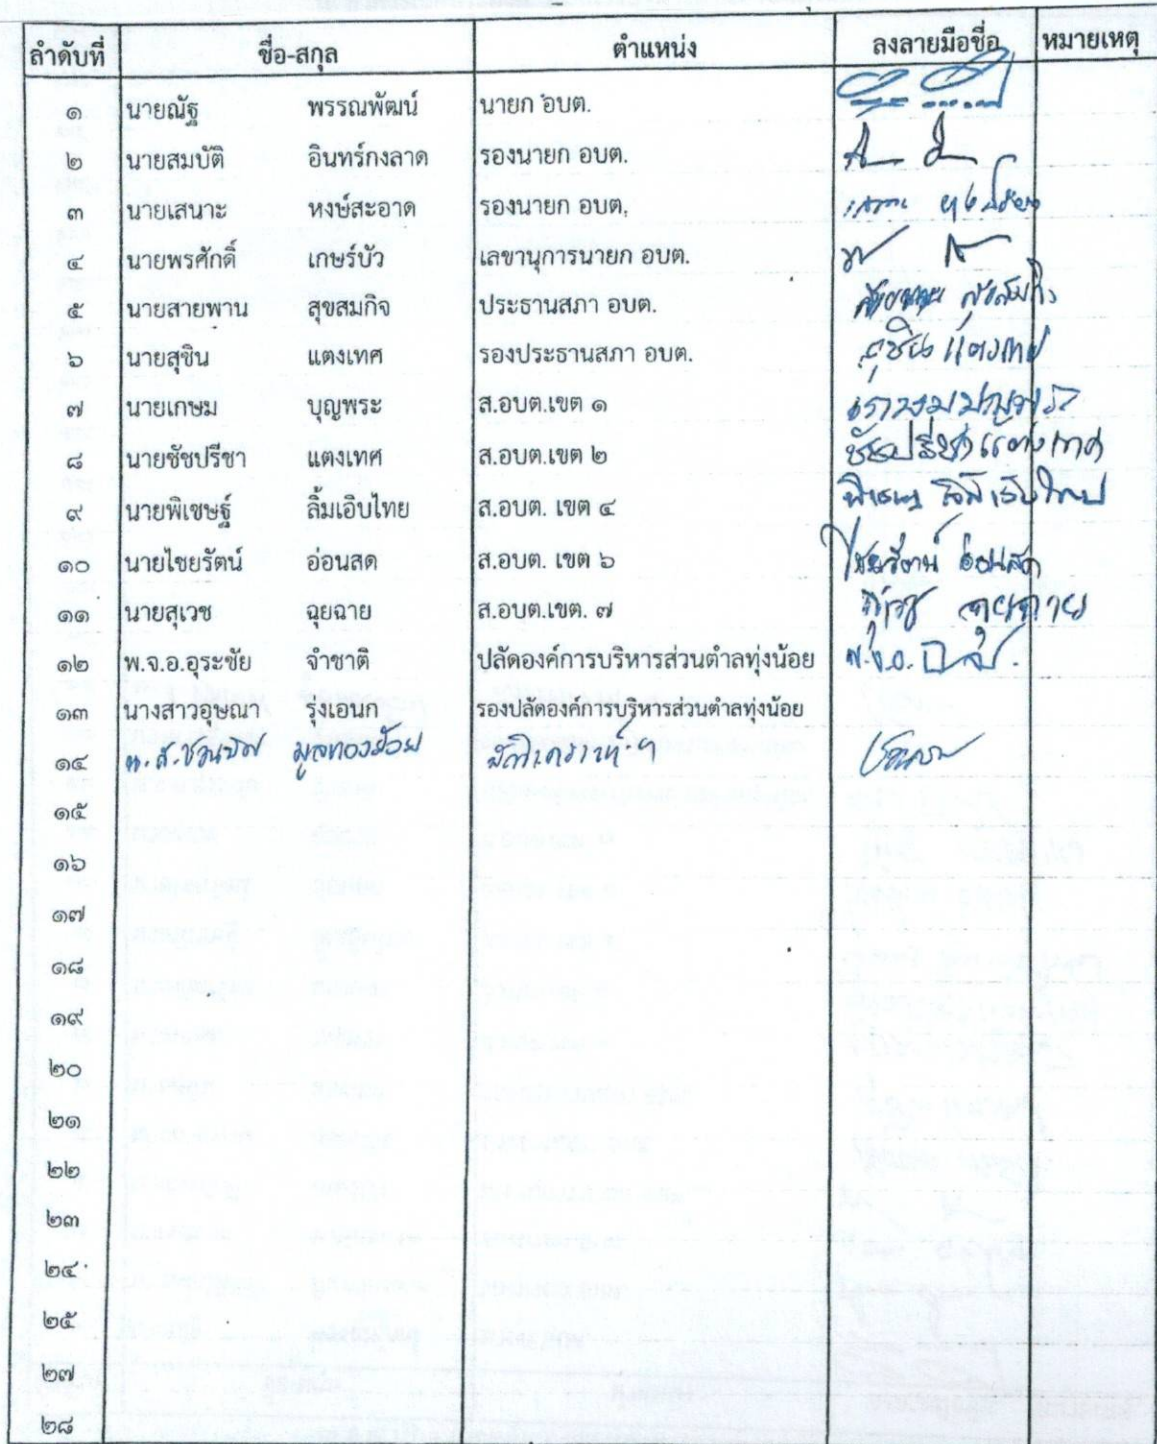 ลำดับที่ ชื่อ-สกุล ตำแหน่ง ลงลายมือชื่อ หมายเหตุ
๑ นายณัฐ พรรณพัฒน์ นายก อบต.
๒ นายสมบัติ อินทร์กงลาด รองนายก อบต.
๓ นายเสนาะ หงษ์สะอาด รองนายก อบต.
๔ นายพรศักดิ์ เกษร์บัว เลขานุการนายก อบต.
๕ นายสายพาน สุขสมกิจ ประธานสภา อบต. สายพาน สุขสมกิจ
๖ นายสุชิน แตงเทศ รองประธานสภา อบต. สุชิน แตงเทศ
๗ นายเกษม บุญพระ ส.อบต.เขต ๑ เกษม บุญพระ
๘ นายชัชปรีชา แตงเทศ ส.อบต.เขต ๒ ชัชปรีชา แตงเทศ
๙ นายพิเชษฐ์ ลิ้มเอิบไทย ส.อบต. เขต ๔
๑๐ นายไชยรัตน์ อ่อนสด ส.อบต. เขต ๖ ไชยรัตน์ อ่อนสด
๑๑ นายสุเวช ฉุยฉาย ส.อบต.เขต. ๗ สุเวช ฉุยฉาย
๑๒ พ.จ.อ.อุระชัย จำชาติ ปลัดองค์การบริหารส่วนตำลทุ่งน้อย พ.จ.อ.
๑๓ นางสาวอุษณา รุ่งเอนก รองปลัดองค์การบริหารส่วนตำลทุ่งน้อย
๑๔ น.ส. มูลทองย้อย
๑๕
๑๖
๑๗
๑๘
๑๙
๒๐
๒๑
๒๒
๒๓
๒๔
๒๕
๒๗
๒๘